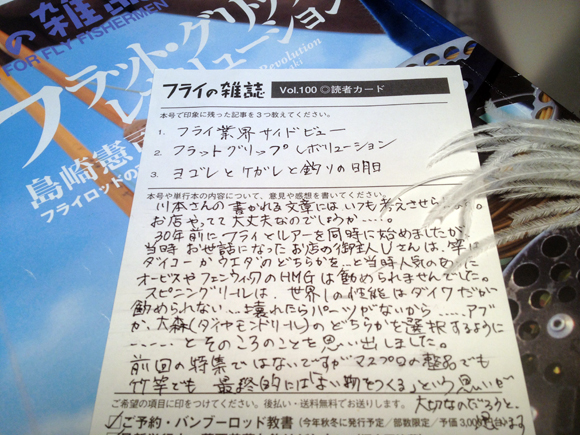 の雑誌
FOR FLY FISHERMEN
フラット・グリップ
レボリューション
Revolution
島崎憲司
フライロッドの
フライの雑誌 Vol.100 ◎読者カード
本号で印象に残った記事を3つ教えてください。
1. フライ業界サイドビュー
2. フラットグリップレボリューション
3. ヨゴレとケガレと釣りの明日
本号や単行本の内容について、意見や感想を書いてください。
川本さんの書かれる文章にはいつも考えさせられます。
お店やってて大丈夫なのでしょうか……。
30年前にフライとルアーを同時に始めましたが、
当時お世話になったお店の御主人Uさんは、竿は
ダイコーかウエダのどちらかを…と当時人気のあった
オービスやフェンウィックのHMGは勧められませんでした。
スピニングリールは、世界1の性能はダイワだが
勧められない…壊れたらパーツがないから……アブ
か、大森(ダイヤモンドリール)のどちらかを選択するように
……とそのころのことを思い出しました。
前回の特集ではないですがマスプロの製品でも
竹竿でも最終的には「よい物をつくる」という思いが
大切なのだろうと、
思います
ご希望の項目に印をつけてください。後払い・送料無料でお送りします。
ご予約・バンブーロッド教書(今年秋冬に発行予定/部数限定/予価3,00